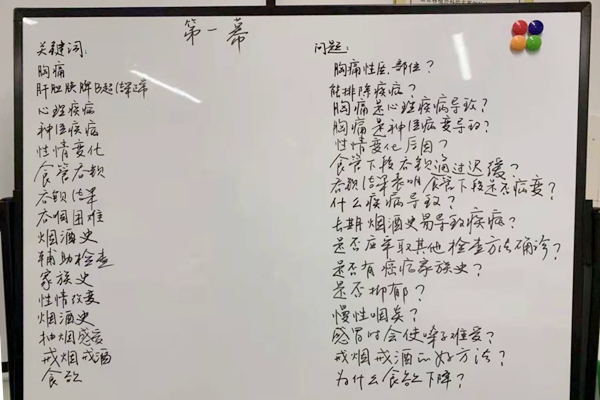 第一幕
关键词:
胸痛
肝胆胰脾B超结果正常
心理疾病
神经疾病
性情变化
食管吞钡
吞钡结果
吞咽困难
烟酒史
辅助检查
家族史
性情改变
烟酒史
抽烟感受
戒烟戒酒
食欲
问题:
胸痛性质.部位?
能排除疾病?
胸痛是心理疾病导致?
胸痛是神经病变导致?
性情变化原因?
食管下段吞钡通过迟缓?
吞钡结果表明食管下段是否病变?
什么疾病导致?
长期烟酒史易导致疾病?
是否应采取其他检查方法确诊?
是否有癌症家族史?
是否抑郁?
慢性咽炎?
感冒时会使嗓子难受?
戒烟戒酒的好方法?
为什么食欲下降?